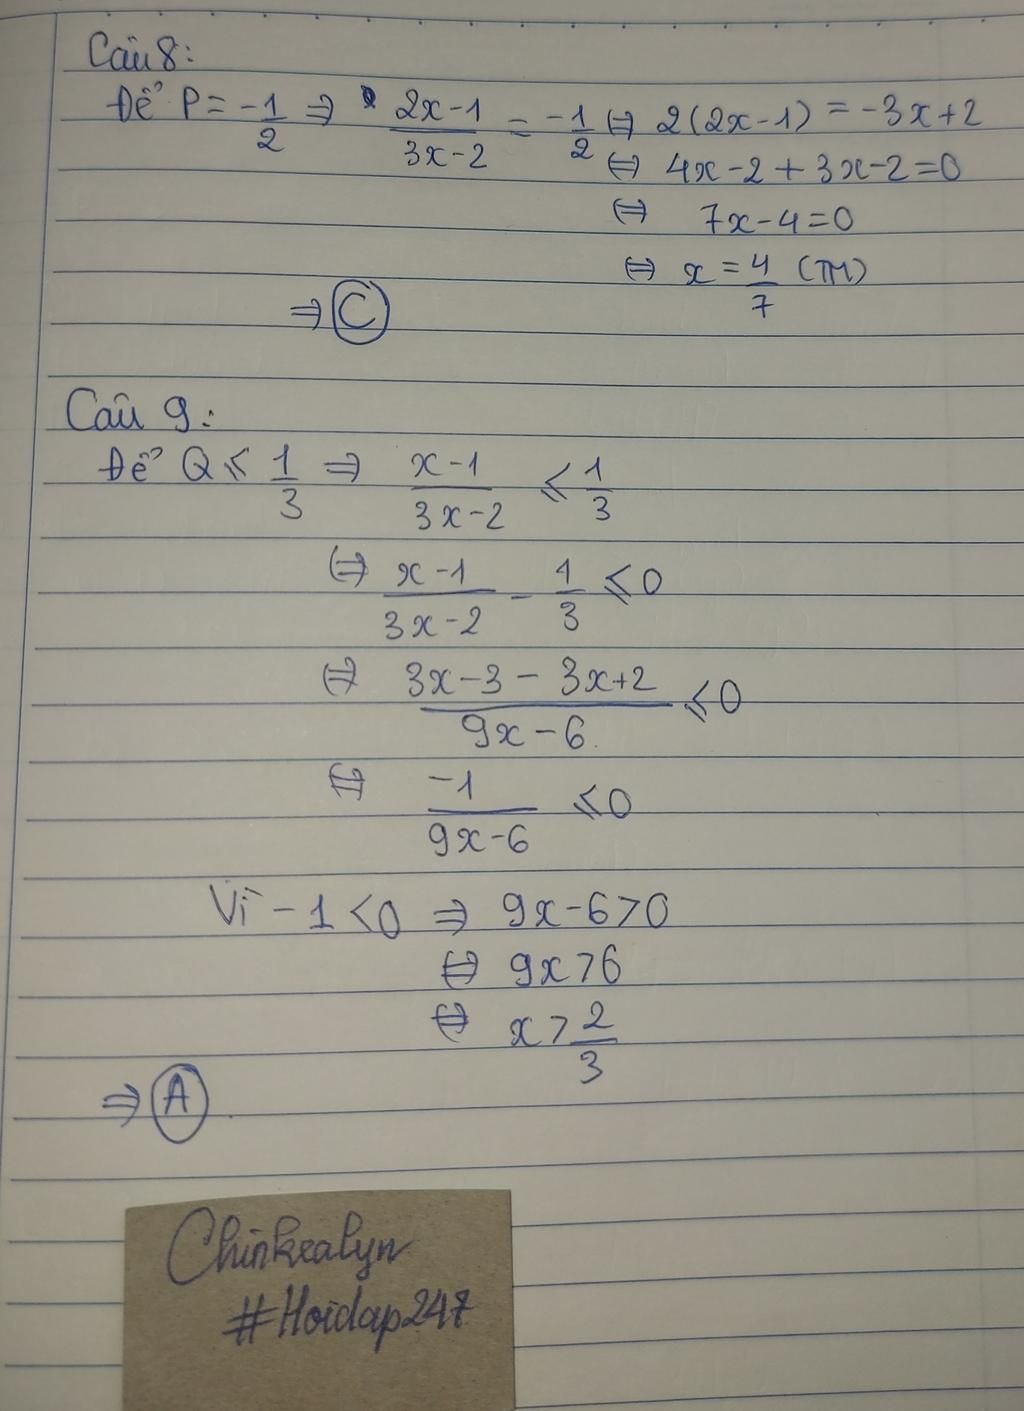 Câu 8:
Để P = -1/2 ⇒ 2x-1/3x-2 = -1/2 ⇔ 2(2x-1) = -3x+2
⇔ 4x-2+3x-2=0
⇔ 7x-4=0
⇔ x = 4/7 (TM)
⇒ C
Câu 9:
Để Q ≤ 1/3 ⇒ x-1/3x-2 ≤ 1/3
⇔ x-1/3x-2 - 1/3 ≤ 0
⇔ 3x-3-3x+2/9x-6 ≤ 0
⇔ -1/9x-6 ≤ 0
Vì -1<0 ⇒ 9x-6>0
⇔ 9x>6
⇔ x > 2/3
⇒ A
Chinkealyn
#Hoidap247